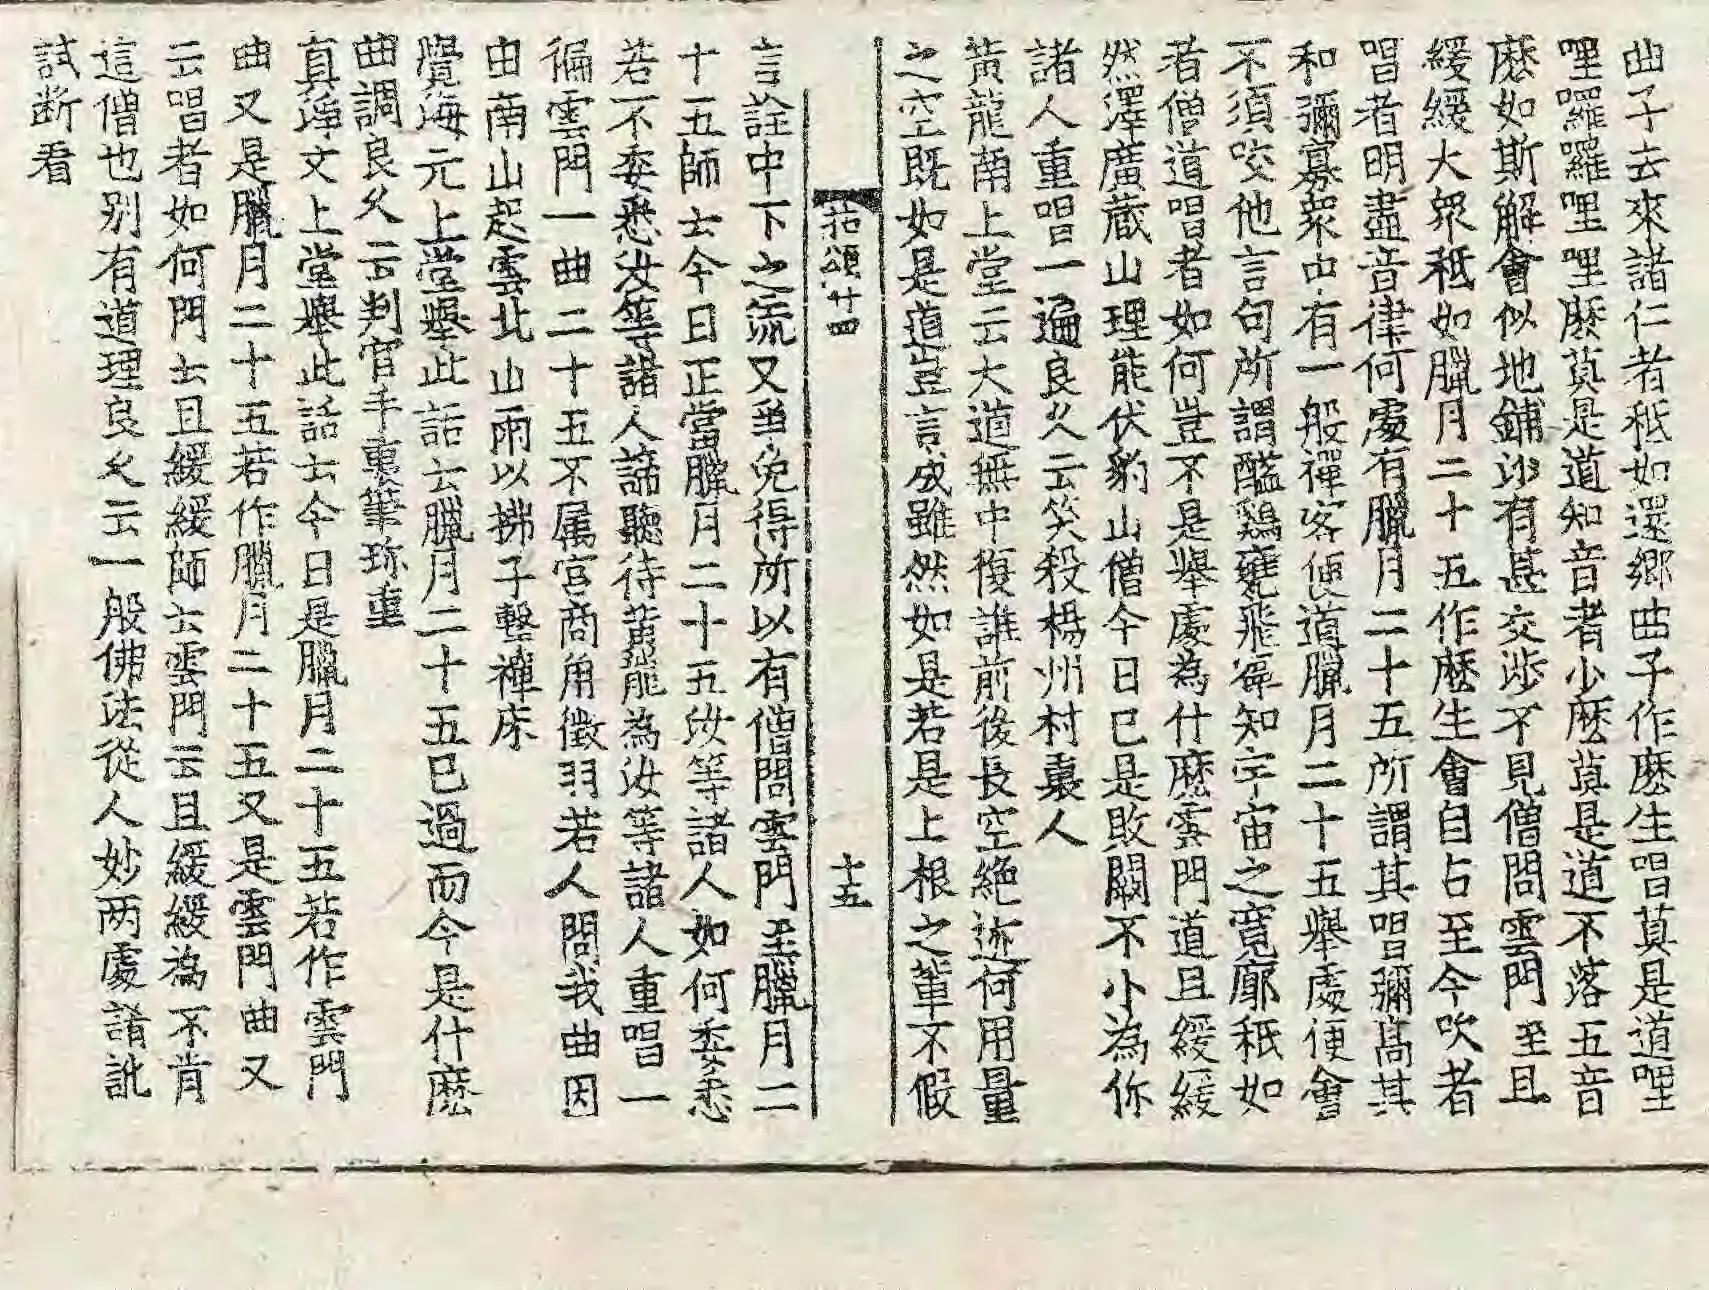 曲子去來諸仁者秪如還鄉曲子作麽生唱莫是道哩
哩囉囉哩哩麽莫是道知音者少麽莫是道不落五音
麽如斯解會似地鋪沙有甚交涉不見僧問雲門至且
緩緩大衆秪如臘月二十五作麽生會自占至今吹者
唱者明盡音律何處有臘月二十五所謂其唱彌髙其
和彌寡衆中有一般禪客便道臘月二十五舉處便會
不須咬他言句所謂醯鷄甕飛寧知宇宙之寬廓秪如
者僧道唱者如何豈不是舉處為什麽雲門道且緩緩
然澤廣蔵山理能伏豹山僧今日已是敗闕不小為你
諸人重唱一遍良久云笑殺楊州村裏人
黃龍南上堂云大道無中復誰前後長空絶迹何用量
之空既如是道豈言哉雖然如是若是上根之輩不假
拈頌廿四 十五
言詮中下之流又爭免得所以有僧問雲門至臘月二
十五師云今日正當臘月二十五汝等諸人如何委悉
若不委悉汝等諸人諦聽待黃龍為汝等諸人重唱一
徧雲門一曲二十五不属宫商角徵羽若人問我曲因
由南山起雲北山雨以拂子擊禪床
覺海元上堂舉此話云臘月二十五已過而今是什麽
曲調良久云判官手裏筆珎重
真淨文上堂舉此話云今日是臘月二十五若作雲門
曲又是臘月二十五若作臘月二十五又是雲門曲又
云唱者如何門云且緩緩師云雲門云且緩緩為不肯
這僧也别有道理良久云一般佛法從人妙两處誵訛
試断看